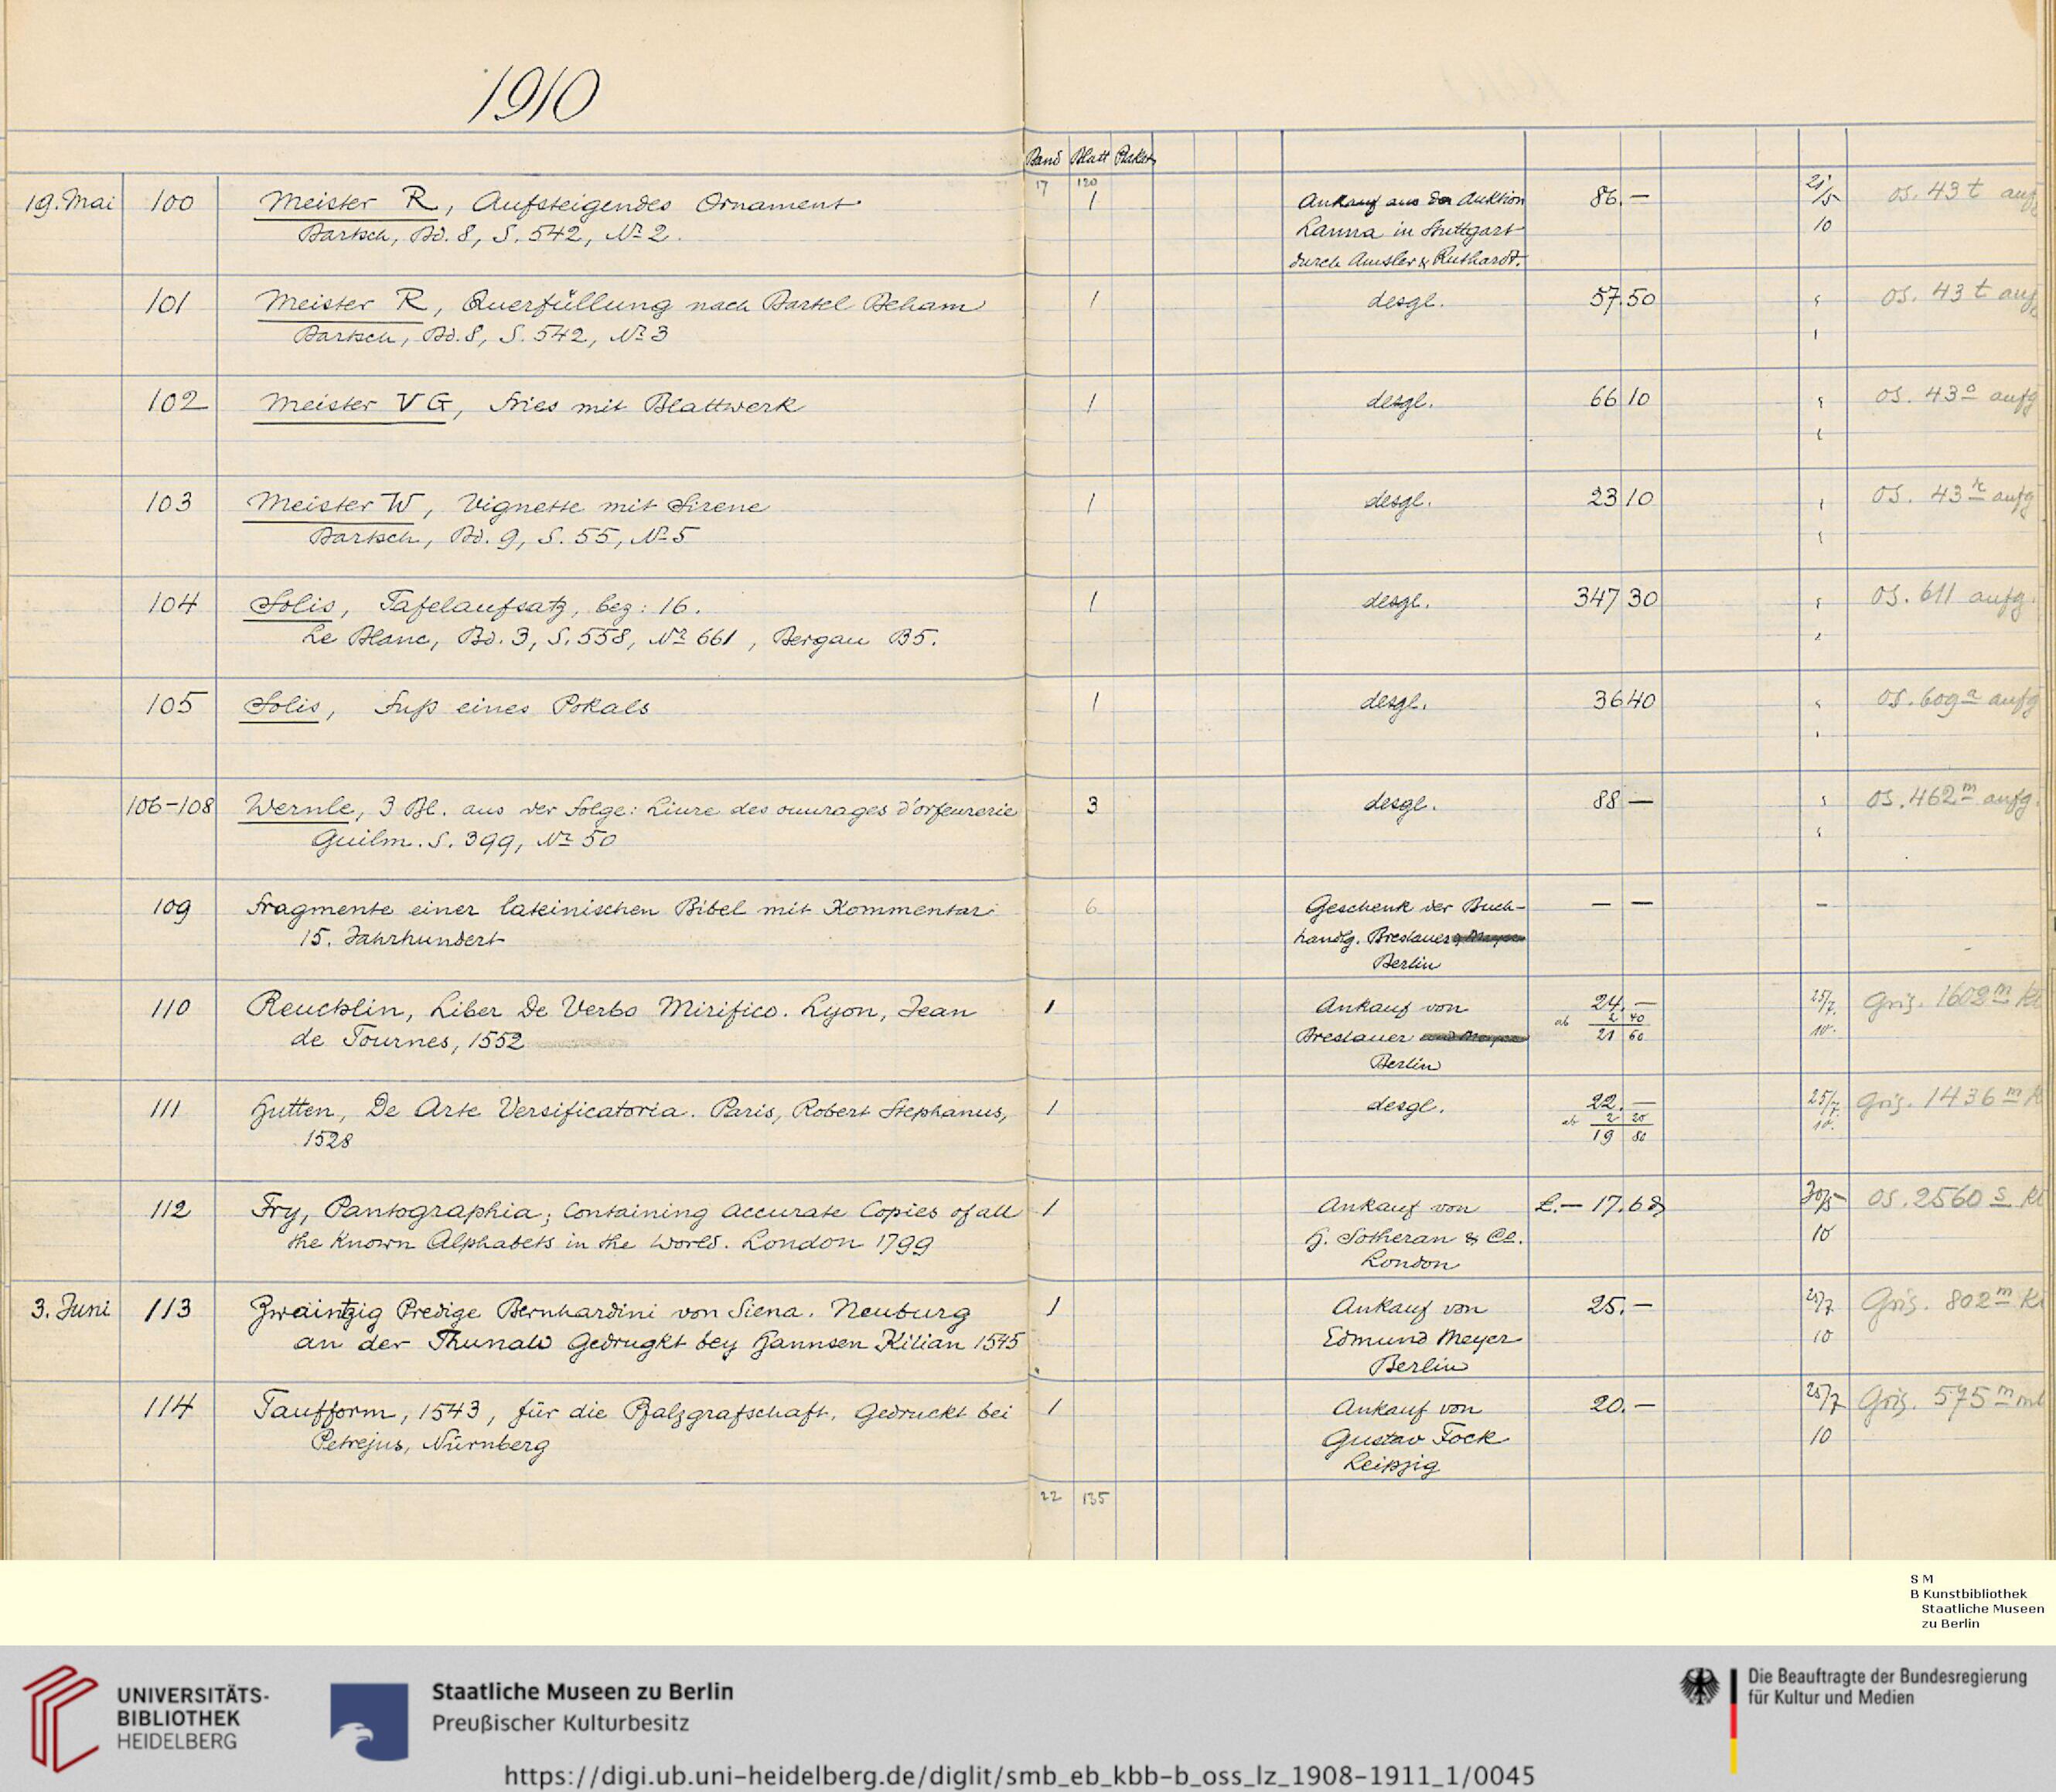 1910
Band Blatt Plakat
17 120
19. Mai 100 Meister R, Aufsteigendes Ornament 1 Ankauf aus der Auktion 86.— 21/5 OS. 43 t aufg
Bartsch, Bd. 8, S. 542, No 2. Lanna in Stuttgart 10
durch Amsler & Ruthardt.
101 Meister R, Querfüllung nach Bartel Beham 1 desgl. 57.50 OS. 43 t aufg
Bartsch, Bd. 8, S. 542, No 3
102 Meister VG, Fries mit Blattwerk 1 desgl. 66 10 OS. 43 o aufg
103 Meister W, Vignette mit Sirene 1 desgl. 23 10 OS. 43 k aufg
Bartsch, Bd. 9, S. 55, No 5
104 Solis, Tafelaufsatz, bez: 16. 1 desgl. 347 30 OS. 611 aufg.
Le Blanc, Bd. 3, S. 558, No 661, Bergau B5.
105 Solis, Fuß eines Pokals 1 desgl. 36 40 OS. 609 a aufg
106-108 Wernle, 3 Bl. aus der Folge: Liure des ouurages d'orfeurerie 3 desgl. 88 — OS. 462 m aufg.
Guilm. S. 399, No 50
109 Fragmente einer lateinischen Bibel mit Kommentar 6 Geschenk der Buch- — — —
15. Jahrhundert handlg. Breslauer
Berlin
110 Reuchlin, Liber De Verbo Mirifico. Lyon, Jean 1 Ankauf von 24.— 25/7. Gris. 1602 m Kl
de Tournes, 1552 Breslauer ab 2 40 10.
Berlin 21 60
111 Hutten, De Arte Versificatoria. Paris, Robert Stephanus, 1 desgl. 22.— 25/7. Gris. 1436 m K
1528 ab 2 20 10.
19 80
112 Fry, Pantographia; Containing accurate Copies of all 1 Ankauf von £.— 17.6 d 30/5 OS. 2560 s Kl
the Known Alphabets in the World. London 1799 H. Sotheran & Co. 10
London
3. Juni 113 Zwaintzig Predige Bernhardini von Siena. Neuburg 1 Ankauf von 25.— 25/7 Gris. 802 m Kl
an der Thunaw Gedrugkt bey Hannsen Kilian 1545 Edmund Meyer 10
Berlin
114 Taufform, 1543, für die Pfalzgrafschaft. Gedruckt bei 1 Ankauf von 20.— 25/7 Gris. 575 m mtl
Petrejus, Nürnberg Gustav Fock 10
Leipzig
22 135
S M
B Kunstbibliothek
Staatliche Museen
zu Berlin
UNIVERSITÄTS-
BIBLIOTHEK
HEIDELBERG
Staatliche Museen zu Berlin
Preußischer Kulturbesitz
Die Beauftragte der Bundesregierung
für Kultur und Medien
https://digi.ub.uni-heidelberg.de/diglit/smb_eb_kbb-b_oss_lz_1908-1911_1/0045